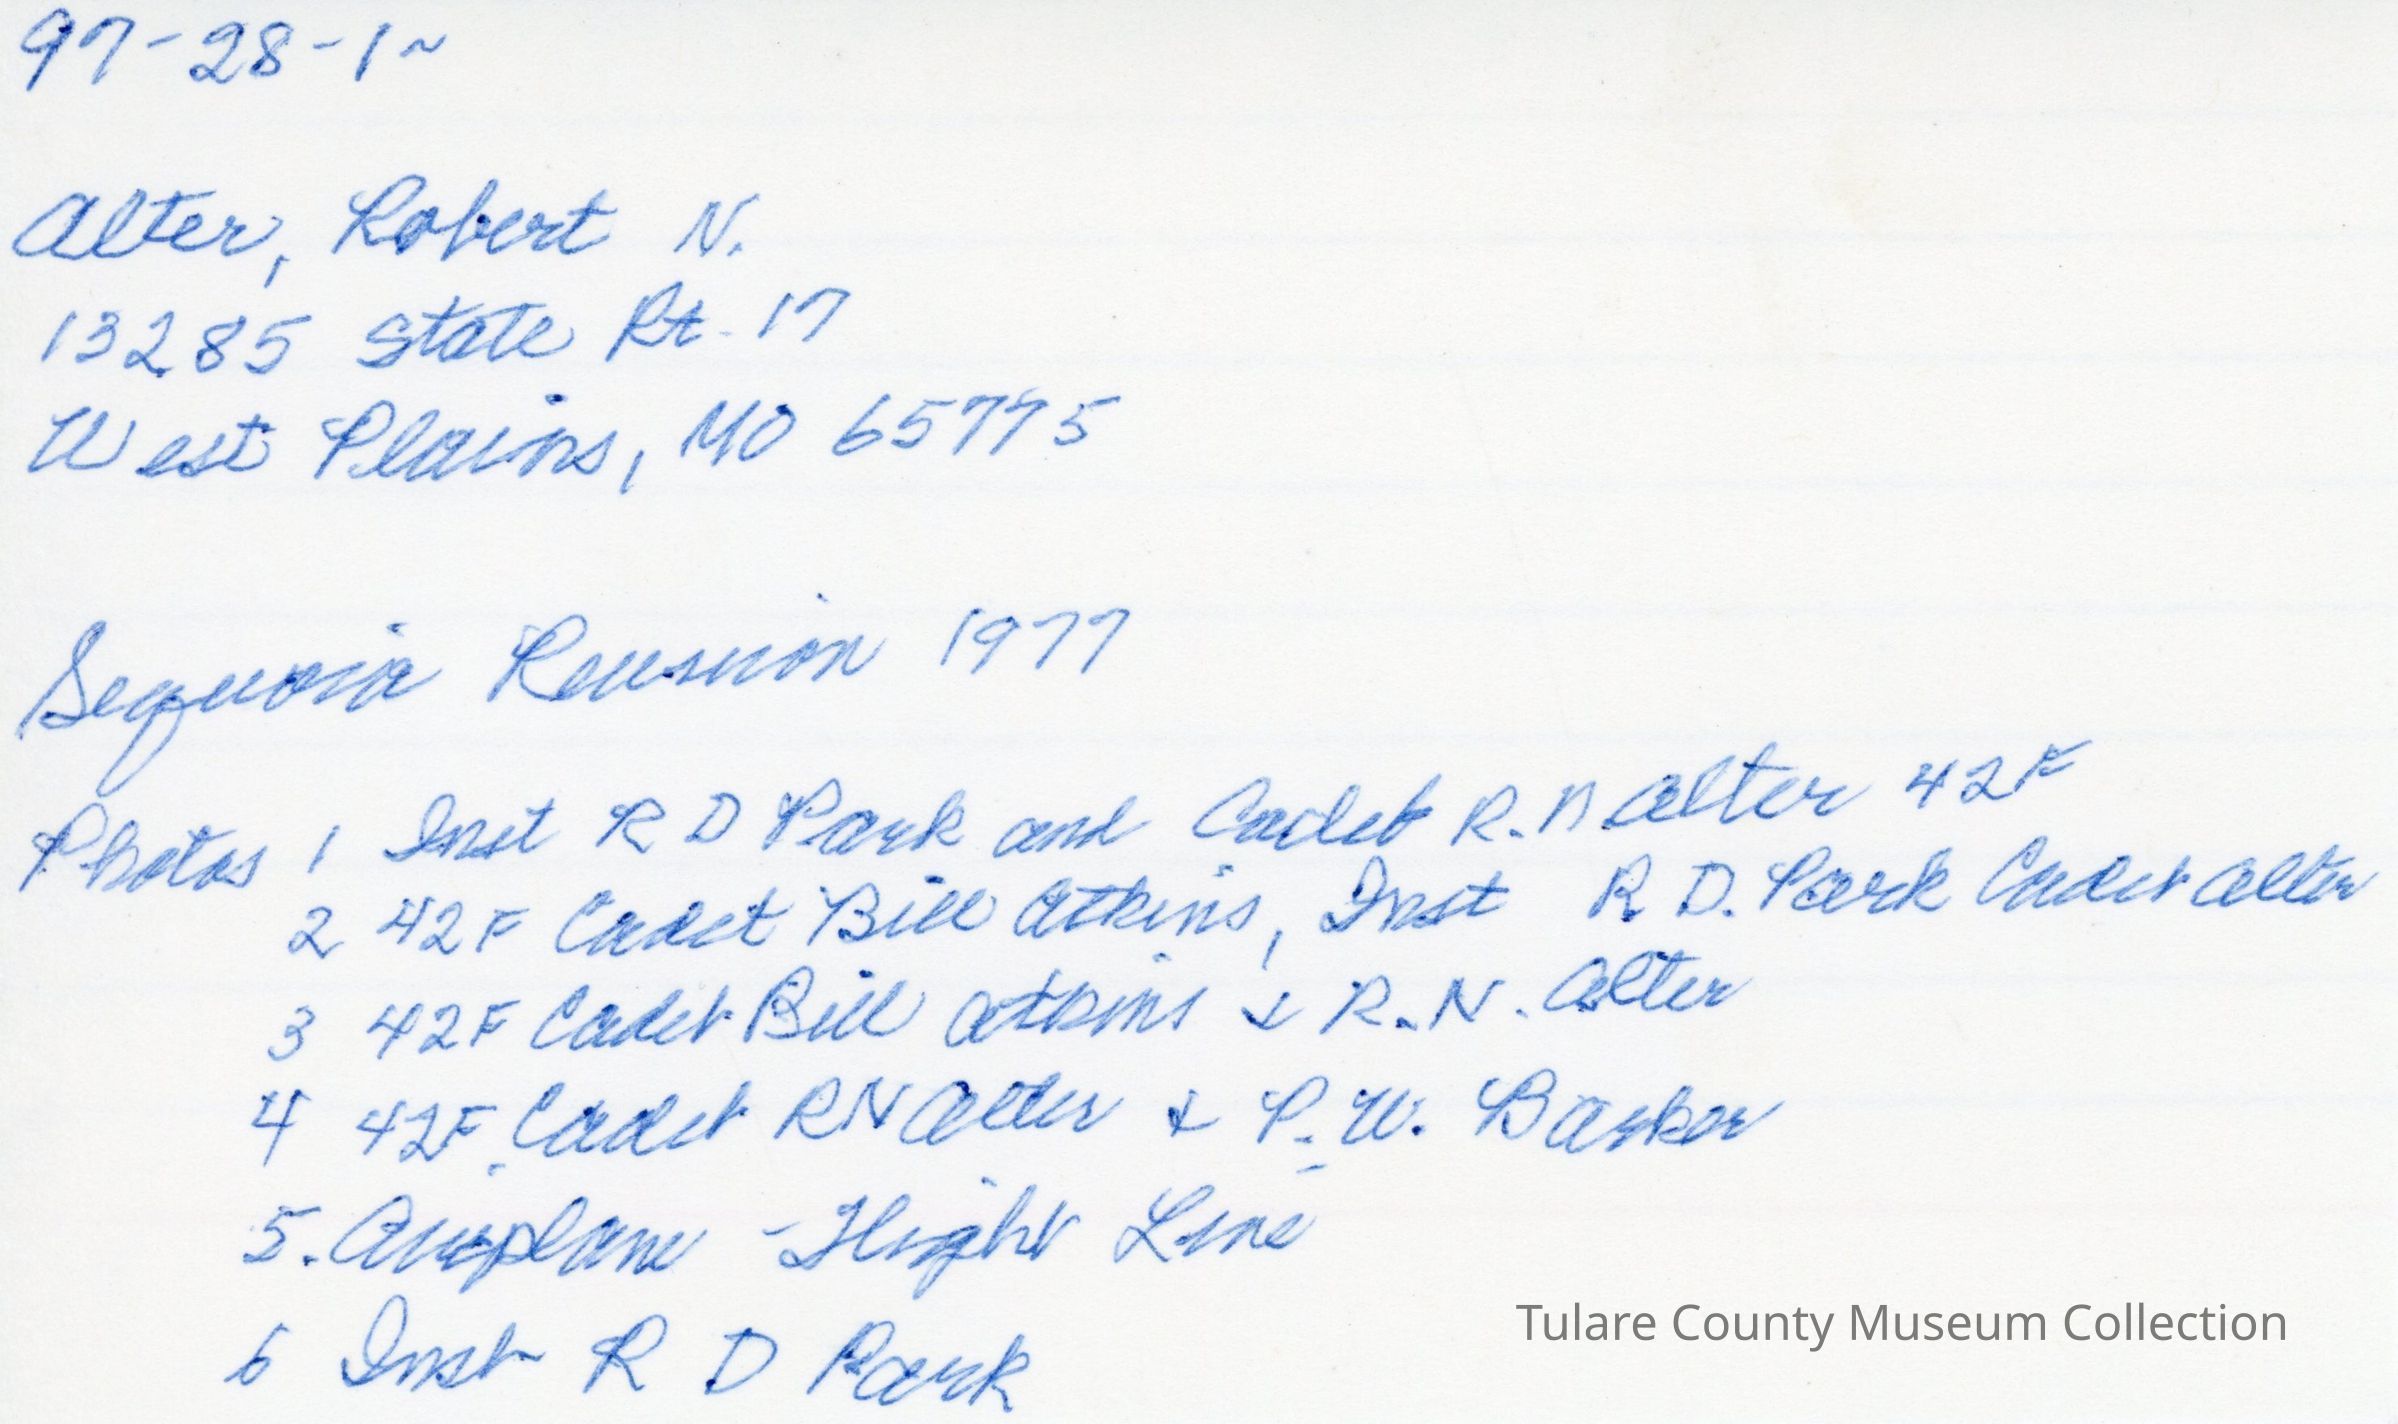 97-28-1~
Alter, Robert N.
13285 State Rt. 17
West Plains, MO 65775
Sequoia Reunion 1977
Photos 1 Inst R D Park and Cadet R. N Alter 42F
2 42F Cadet Bill Atkins, Inst R D. Park Cadet Alter
3 42F Cadet Bill Atkins & R. N. Alter
4 42F Cadet RN Alter & P. W. Barker
5. Airplane - Flight Line
6 Inst R D Park
Tulare County Museum Collection